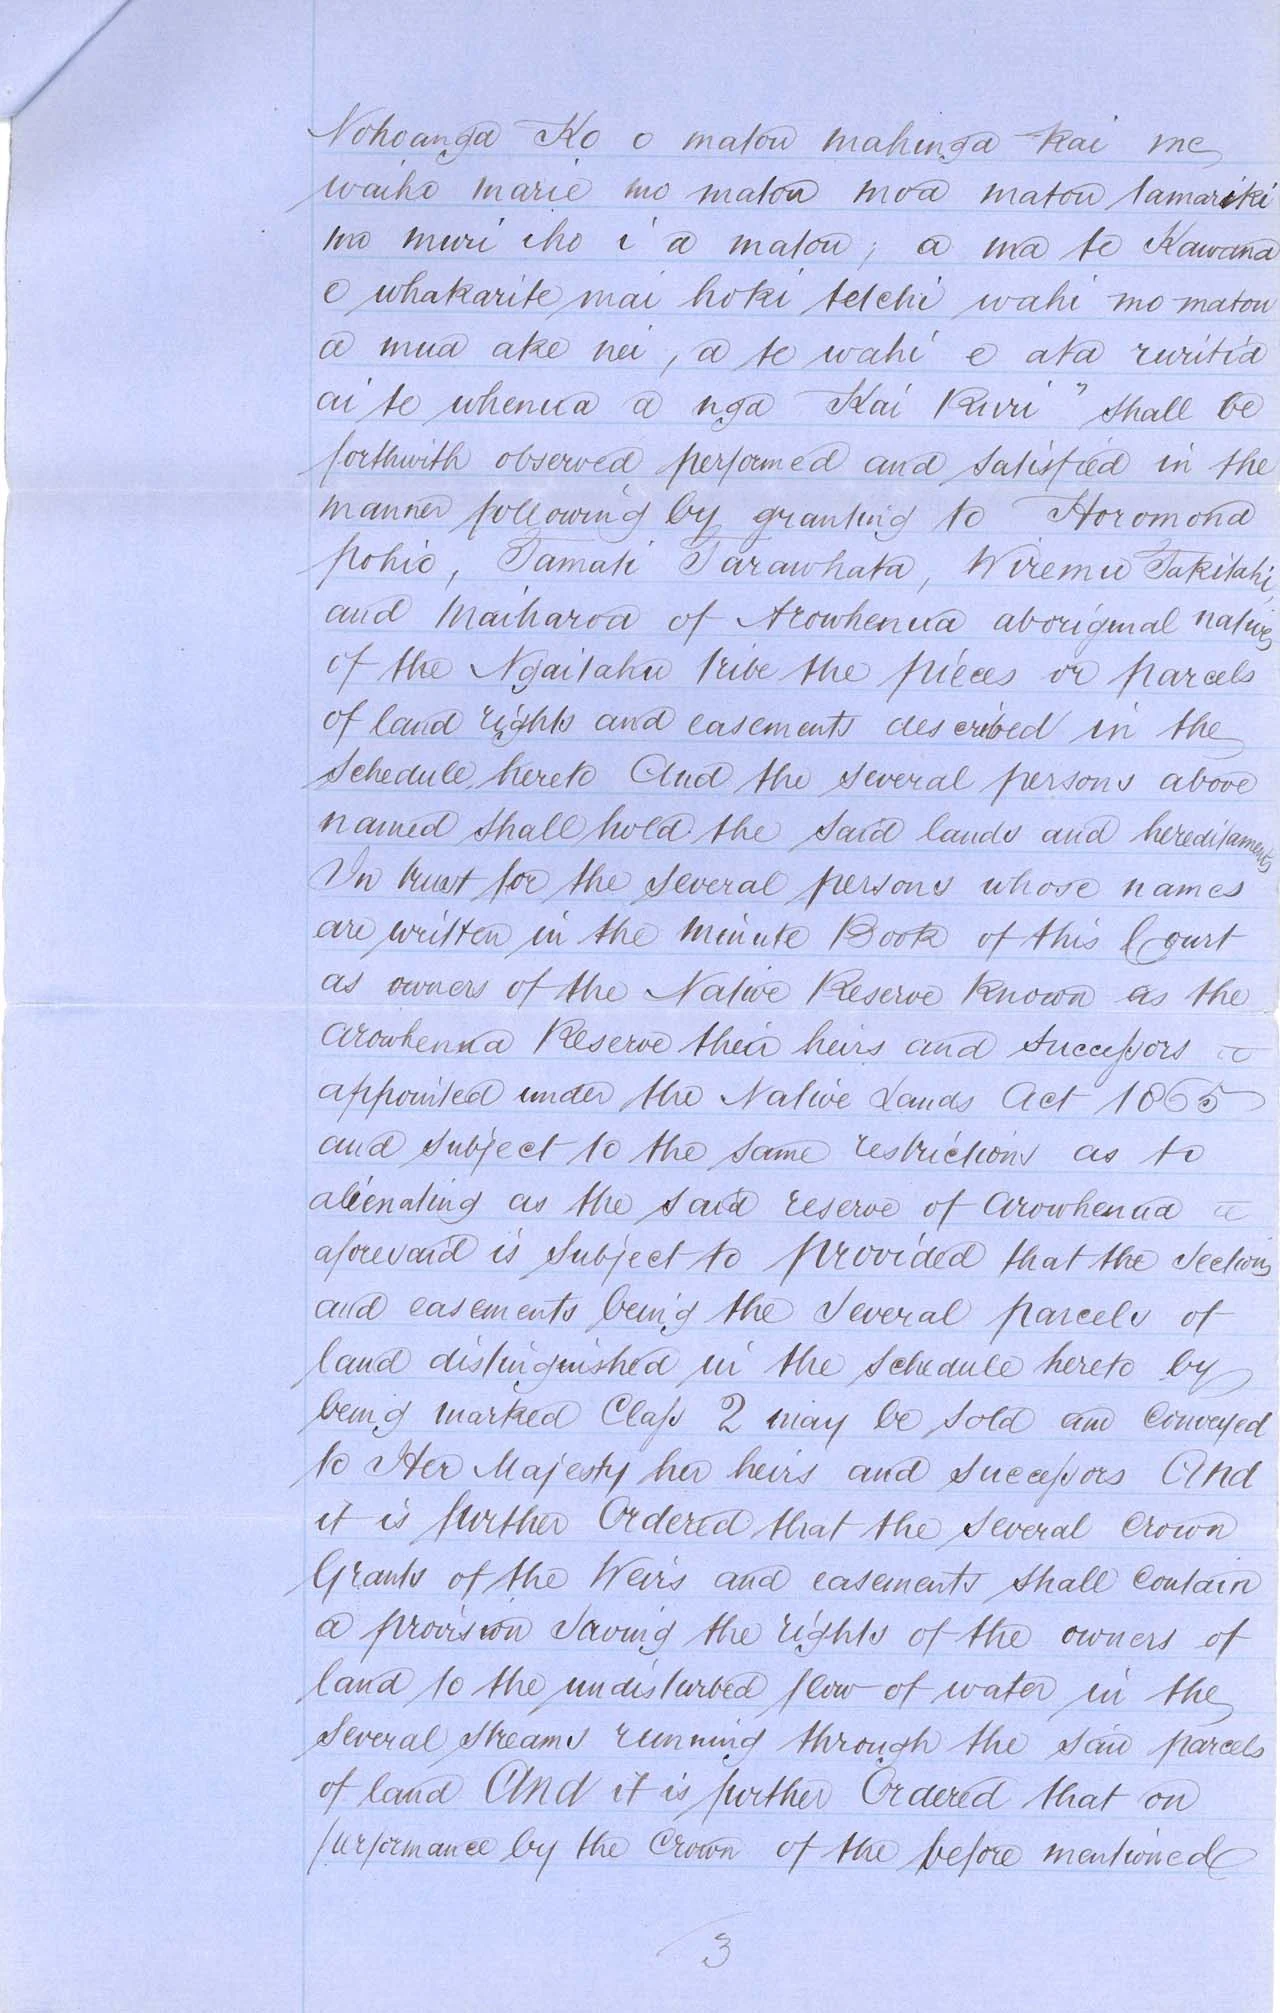 Nohoanga Ko o matou mahinga kai me
waiho marie mo matou moa matou tamariki
mo muri iho i a matou; a ma te Kawana
e whakarite mai hoki tetehi wahi mo matou
a mua ake nei, a te wahi e ata ruritia
ai te whenua a nga Kai Ruri" shall be
forthwith observed performed and satisfied in the
manner following by granting to Horomona
pohio, Tamati Tarawhata, Wiremu Takitahi,
and Maiharoa of Arowhenua aboriginal natives
of the Ngaitahu tribe the pieces or parcels
of land rights and easements described in the
Schedule hereto And the several persons above
named shall hold the said lands and hereditaments
In trust for the several persons whose names
are written in the Minute Book of this Court
as owners of the Native Reserve Known as the
Arowhenua Reserve their heirs and successors
appointed under the Native Lands Act 1865
and subject to the same restrictions as to
alienating as the said reserve of Arowhenua
aforesaid is subject to provided that the Sections
and easements being the several parcels of
land distinguished in the Schedule hereto by
being marked Class 2 may be sold and Conveyed
to Her Majesty her heirs and successors And
it is further Ordered that the several Crown
Grants of the Weirs and easements shall Contain
a provision saving the rights of the owners of
land to the undisturbed flow of water in the
several streams running through the said parcels
of land And it is further Ordered that on
performance by the Crown of the before mentioned
3